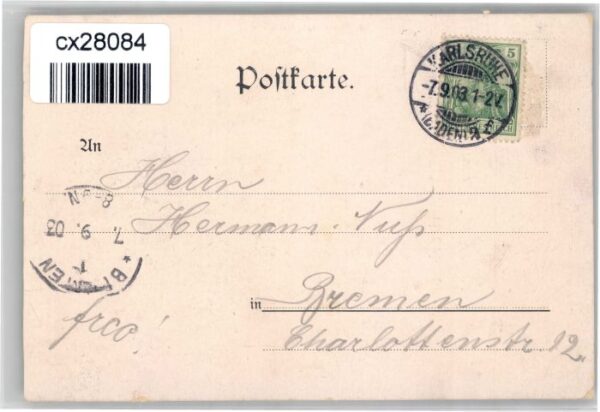 cx28084
Postkarte.
5
KARLSRUHE
-7.9.03.1-2V.
* (BADEN) 2
An
Herrn
Hermann Nuß
8-9 N.
7. 9. 03
* BREMEN
1
in Bremen
frco!
Charlottenstr. 12.